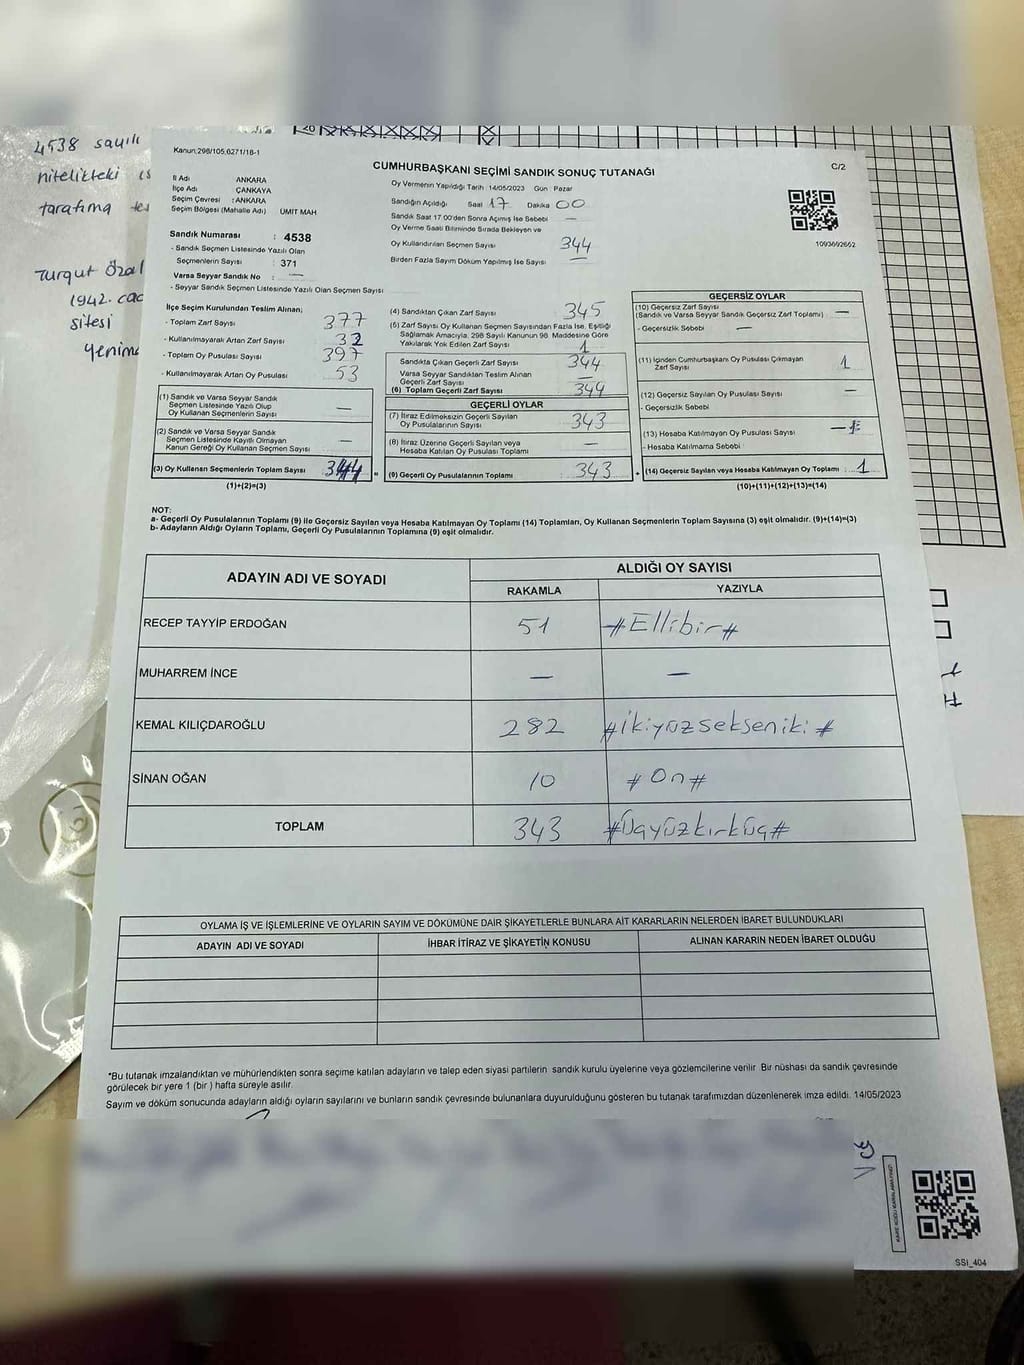 4538 sayılı
nitelikteki
tarafıma
Turgut Özal
1942. cad
sitesi
Kanun,298/105,6271/18-1
CUMHURBAŞKANI SEÇİMİ SANDIK SONUÇ TUTANAĞI
C/2
İl Adı ANKARA
İlçe Adı ÇANKAYA
Seçim Çevresi : ANKARA
Seçim Bölgesi (Mahalle Adı) ÜMİT MAH
Oy Vermenin Yapıldığı Tarih 14/05/2023 Gün Pazar
Sandığın Açıldığı Saat 17 Dakika 00
Sandık Saat 17:00'den Sonra Açılmış İse Sebebi —
Oy Verme Saati Bitiminde Sırada Bekleyen ve
Oy Kullandırılan Seçmen Sayısı 344
Birden Fazla Sayım Döküm Yapılmış İse Sayısı —
1093692662
Sandık Numarası : 4538
- Sandık Seçmen Listesinde Yazılı Olan
Seçmenlerin Sayısı : 371
Varsa Seyyar Sandık No : —
- Seyyar Sandık Seçmen Listesinde Yazılı Olan Seçmen Sayısı
İlçe Seçim Kurulundan Teslim Alınan;
- Toplam Zarf Sayısı 377
- Kullanılmayarak Artan Zarf Sayısı 32
- Toplam Oy Pusulası Sayısı 397
- Kullanılmayarak Artan Oy Pusulası 53
(1) Sandık ve Varsa Seyyar Sandık
Seçmen Listesinde Yazılı Olup
Oy Kullanan Seçmenlerin Sayısı —
(2) Sandık ve Varsa Seyyar Sandık
Seçmen Listesinde Kayıtlı Olmayan
Kanun Gereği Oy Kullanan Seçmen Sayısı —
(3) Oy Kullanan Seçmenlerin Toplam Sayısı 344
(1)+(2)=(3)
(4) Sandıktan Çıkan Zarf Sayısı 345
(5) Zarf Sayısı Oy Kullanan Seçmen Sayısından Fazla İse, Eşitliği
Sağlamak Amacıyla, 298 Sayılı Kanunun 98. Maddesine Göre
Yakılarak Yok Edilen Zarf Sayısı 1
Sandıkta Çıkan Geçerli Zarf Sayısı 344
Varsa Seyyar Sandıktan Teslim Alınan
Geçerli Zarf Sayısı —
(6) Toplam Geçerli Zarf Sayısı 344
GEÇERLİ OYLAR
(7) İtiraz Edilmeksizin Geçerli Sayılan
Oy Pusulalarının Sayısı 343
(8) İtiraz Üzerine Geçerli Sayılan veya
Hesaba Katılan Oy Pusulaları Toplamı —
(9) Geçerli Oy Pusulalarının Toplamı 343
GEÇERSİZ OYLAR
(10) Geçersiz Zarf Sayısı
(Sandık ve Varsa Seyyar Sandık Geçersiz Zarf Toplamı) —
- Geçersizlik Sebebi —
(11) İçinden Cumhurbaşkanı Oy Pusulası Çıkmayan
Zarf Sayısı 1
(12) Geçersiz Sayılan Oy Pusulası Sayısı —
- Geçersizlik Sebebi
(13) Hesaba Katılmayan Oy Pusulası Sayısı —
- Hesaba Katılmama Sebebi
(14) Geçersiz Sayılan veya Hesaba Katılmayan Oy Toplamı 1
(10)+(11)+(12)+(13)=(14)
NOT:
a- Geçerli Oy Pusulalarının Toplamı (9) ile Geçersiz Sayılan veya Hesaba Katılmayan Oy Toplamı (14) Toplamları, Oy Kullanan Seçmenlerin Toplam Sayısına (3) eşit olmalıdır. (9)+(14)=(3)
b- Adayların Aldığı Oyların Toplamı, Geçerli Oy Pusulalarının Toplamına (9) eşit olmalıdır.
ADAYIN ADI VE SOYADI
ALDIĞI OY SAYISI
RAKAMLA YAZIYLA
RECEP TAYYİP ERDOĞAN 51 #Ellibir#
MUHARREM İNCE — —
KEMAL KILIÇDAROĞLU 282 #ikiyüzsekseniki#
SİNAN OĞAN 10 #On#
TOPLAM 343 #Üçyüzkırküç#
OYLAMA İŞ VE İŞLEMLERİNE VE OYLARIN SAYIM VE DÖKÜMÜNE DAİR ŞİKAYETLERLE BUNLARA AİT KARARLARIN NELERDEN İBARET BULUNDUKLARI
ADAYIN ADI VE SOYADI İHBAR İTİRAZ VE ŞİKAYETİN KONUSU ALINAN KARARIN NEDEN İBARET OLDUĞU
*Bu tutanak imzalandıktan ve mühürlendikten sonra seçime katılan adayların ve talep eden siyasi partilerin sandık kurulu üyelerine veya gözlemcilerine verilir. Bir nüshası da sandık çevresinde
görülecek bir yere 1 (bir ) hafta süreyle asılır.
Sayım ve döküm sonucunda adayların aldığı oyların sayılarını ve bunların sandık çevresinde bulunanlara duyurulduğunu gösteren bu tutanak tarafımızdan düzenlenerek imza edildi. 14/05/2023
SSİ_404